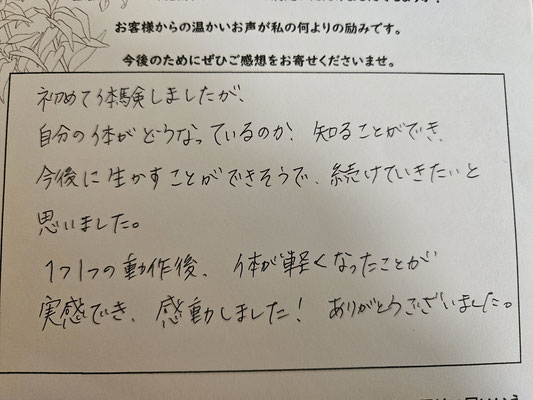 お客様からの温かいお声が私の何よりの励みです。
今後のためにぜひご感想をお寄せくださいませ。
初めて体験しましたが、
自分の体がどうなっているのか、知ることができ、
今後に生かすことができそうで、続けていきたいと
思いました。
1つ1つの動作後、体が軽くなったことが
実感でき、感動しました！ ありがとうございました。